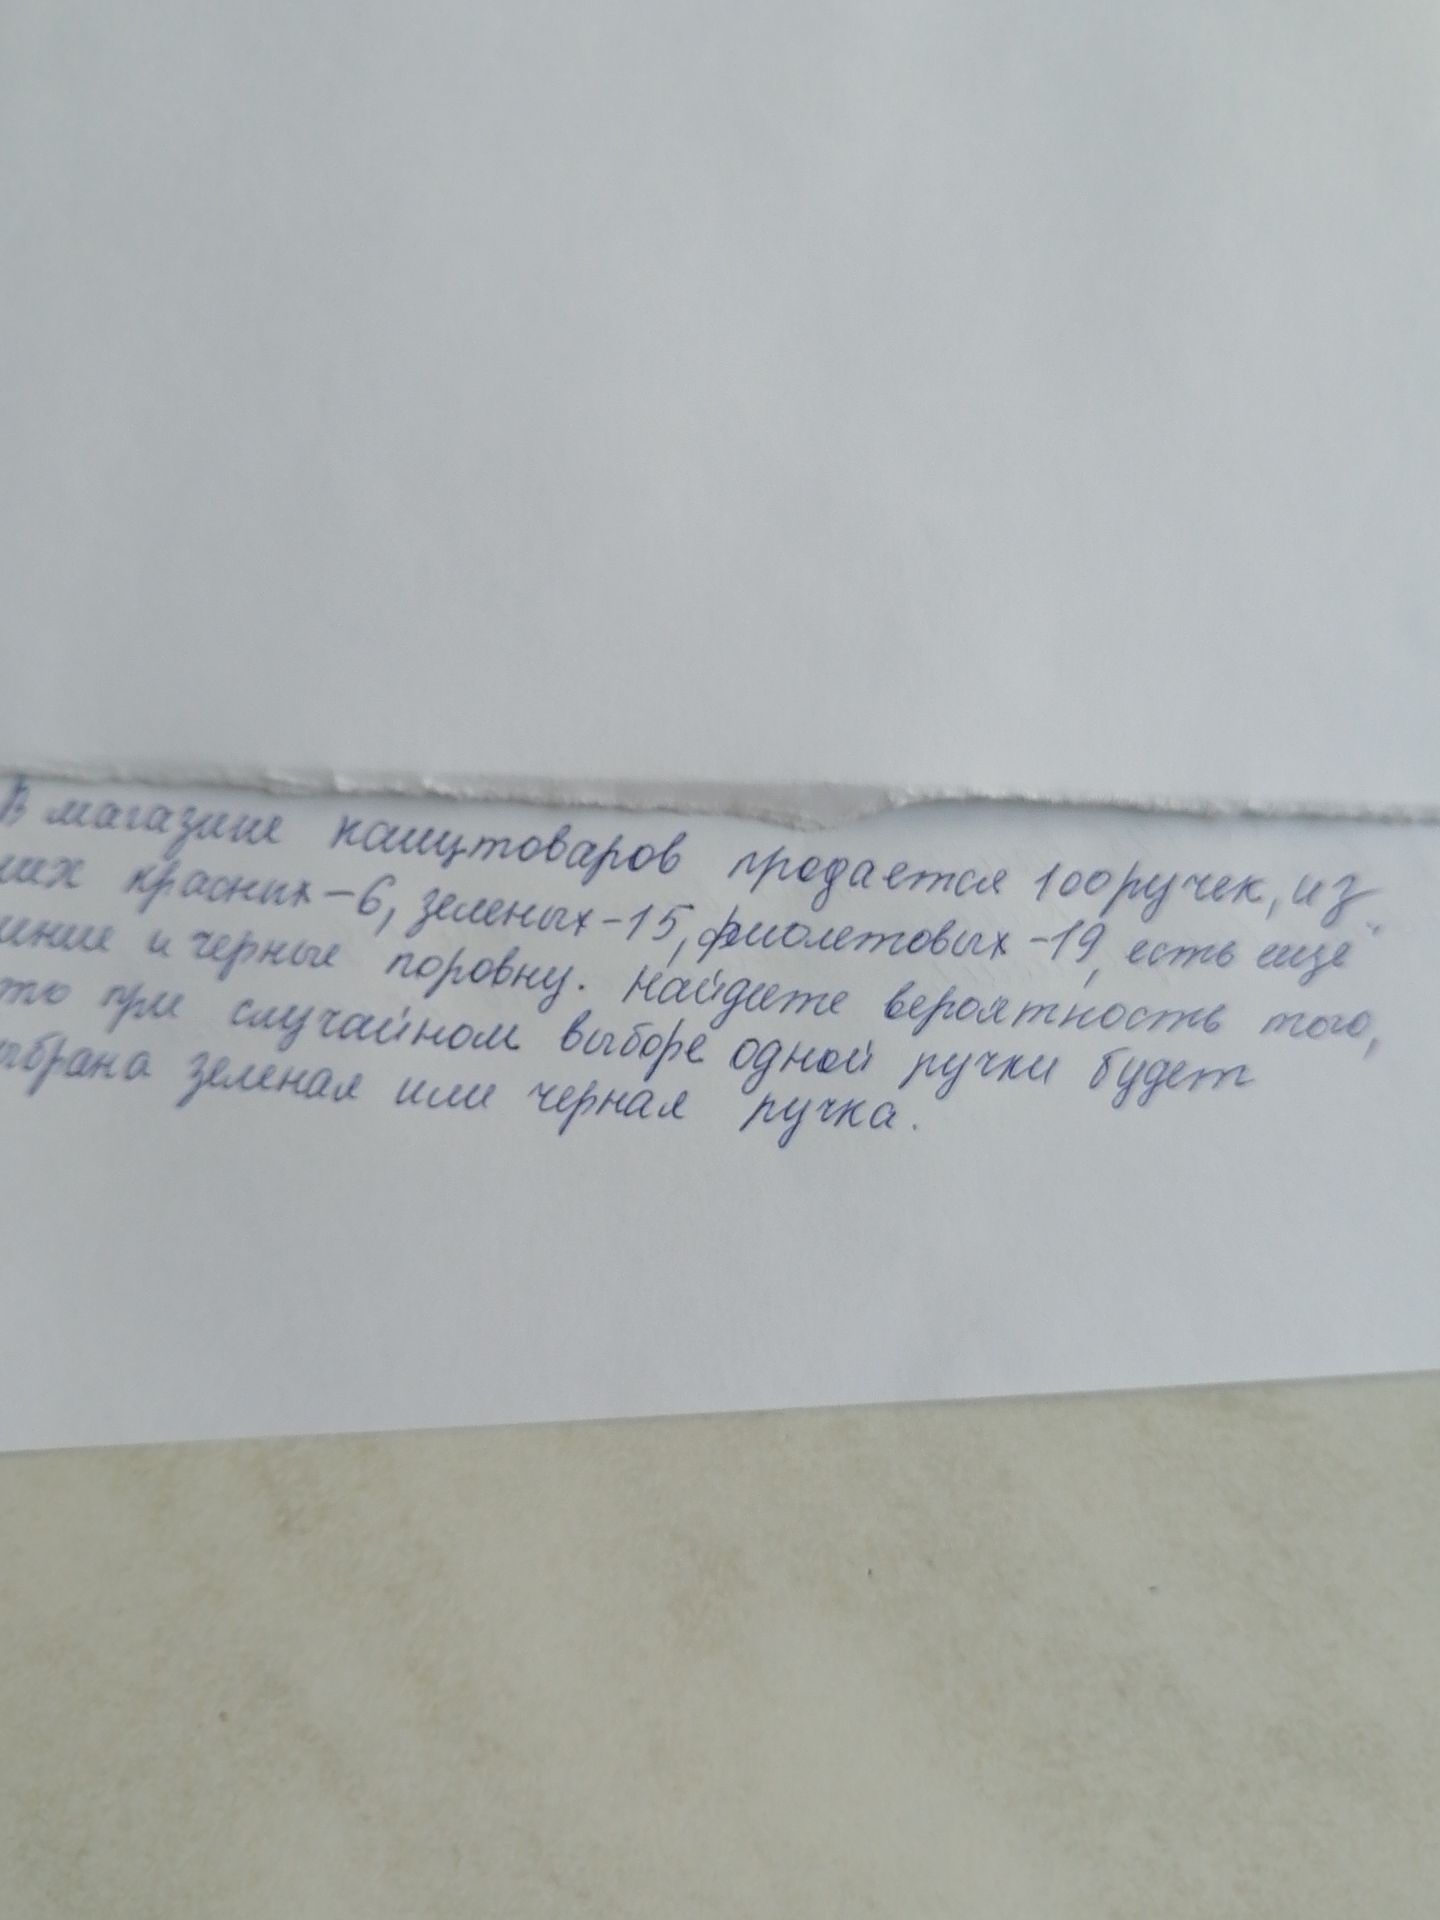 В магазине канцтоваров продается 100 ручек, из
них красных - 6, зеленых - 15, фиолетовых - 19, есть ещё
синие и черные поровну. Найдите вероятность того,
что при случайном выборе одной ручки будет
выбрана зеленая или черная ручка.